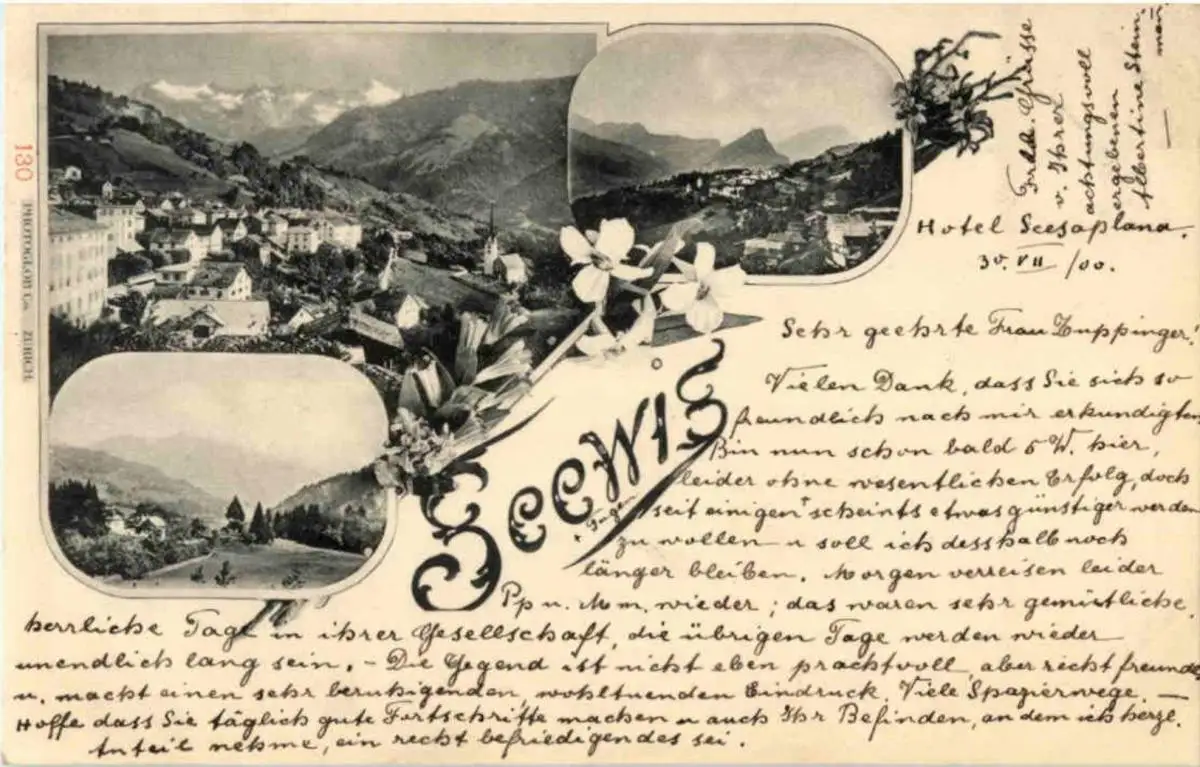 130
PHOTOGLOB Co. ZÜRICH
Seewis
Hotel Scesaplana.
30. VII /00.
Sehr geehrte Frau Zuppinger.
Vielen Dank, dass Sie sich so
freundlich nach mir erkundigten
Bin nun schon bald 5 W. hier,
leider ohne wesentlichen Erfolg, doch
seit einigen Tagen scheints etwas günstiger werden
zu wollen u soll ich desshalb noch
länger bleiben. Morgen verreisen leider
Pp u. Mm. wieder; das waren sehr gemütliche,
herrliche Tage in ihrer Gesellschaft, die übrigen Tage werden wieder
unendlich lang sein. - Die Gegend ist nicht eben prachtvoll, aber recht freundl
u. macht einen sehr beruhigenden, wohltuenden Eindruck. Viele Spazierwege. —
Hoffe dass Sie täglich gute Fortschritte machen u auch Ihr Befinden, an dem ich herzl.
Anteil nehme, ein recht befriedigendes sei.
Grüsse
v. Ihrer
achtungsvoll
ergebenen
Albertine Stein-
mann